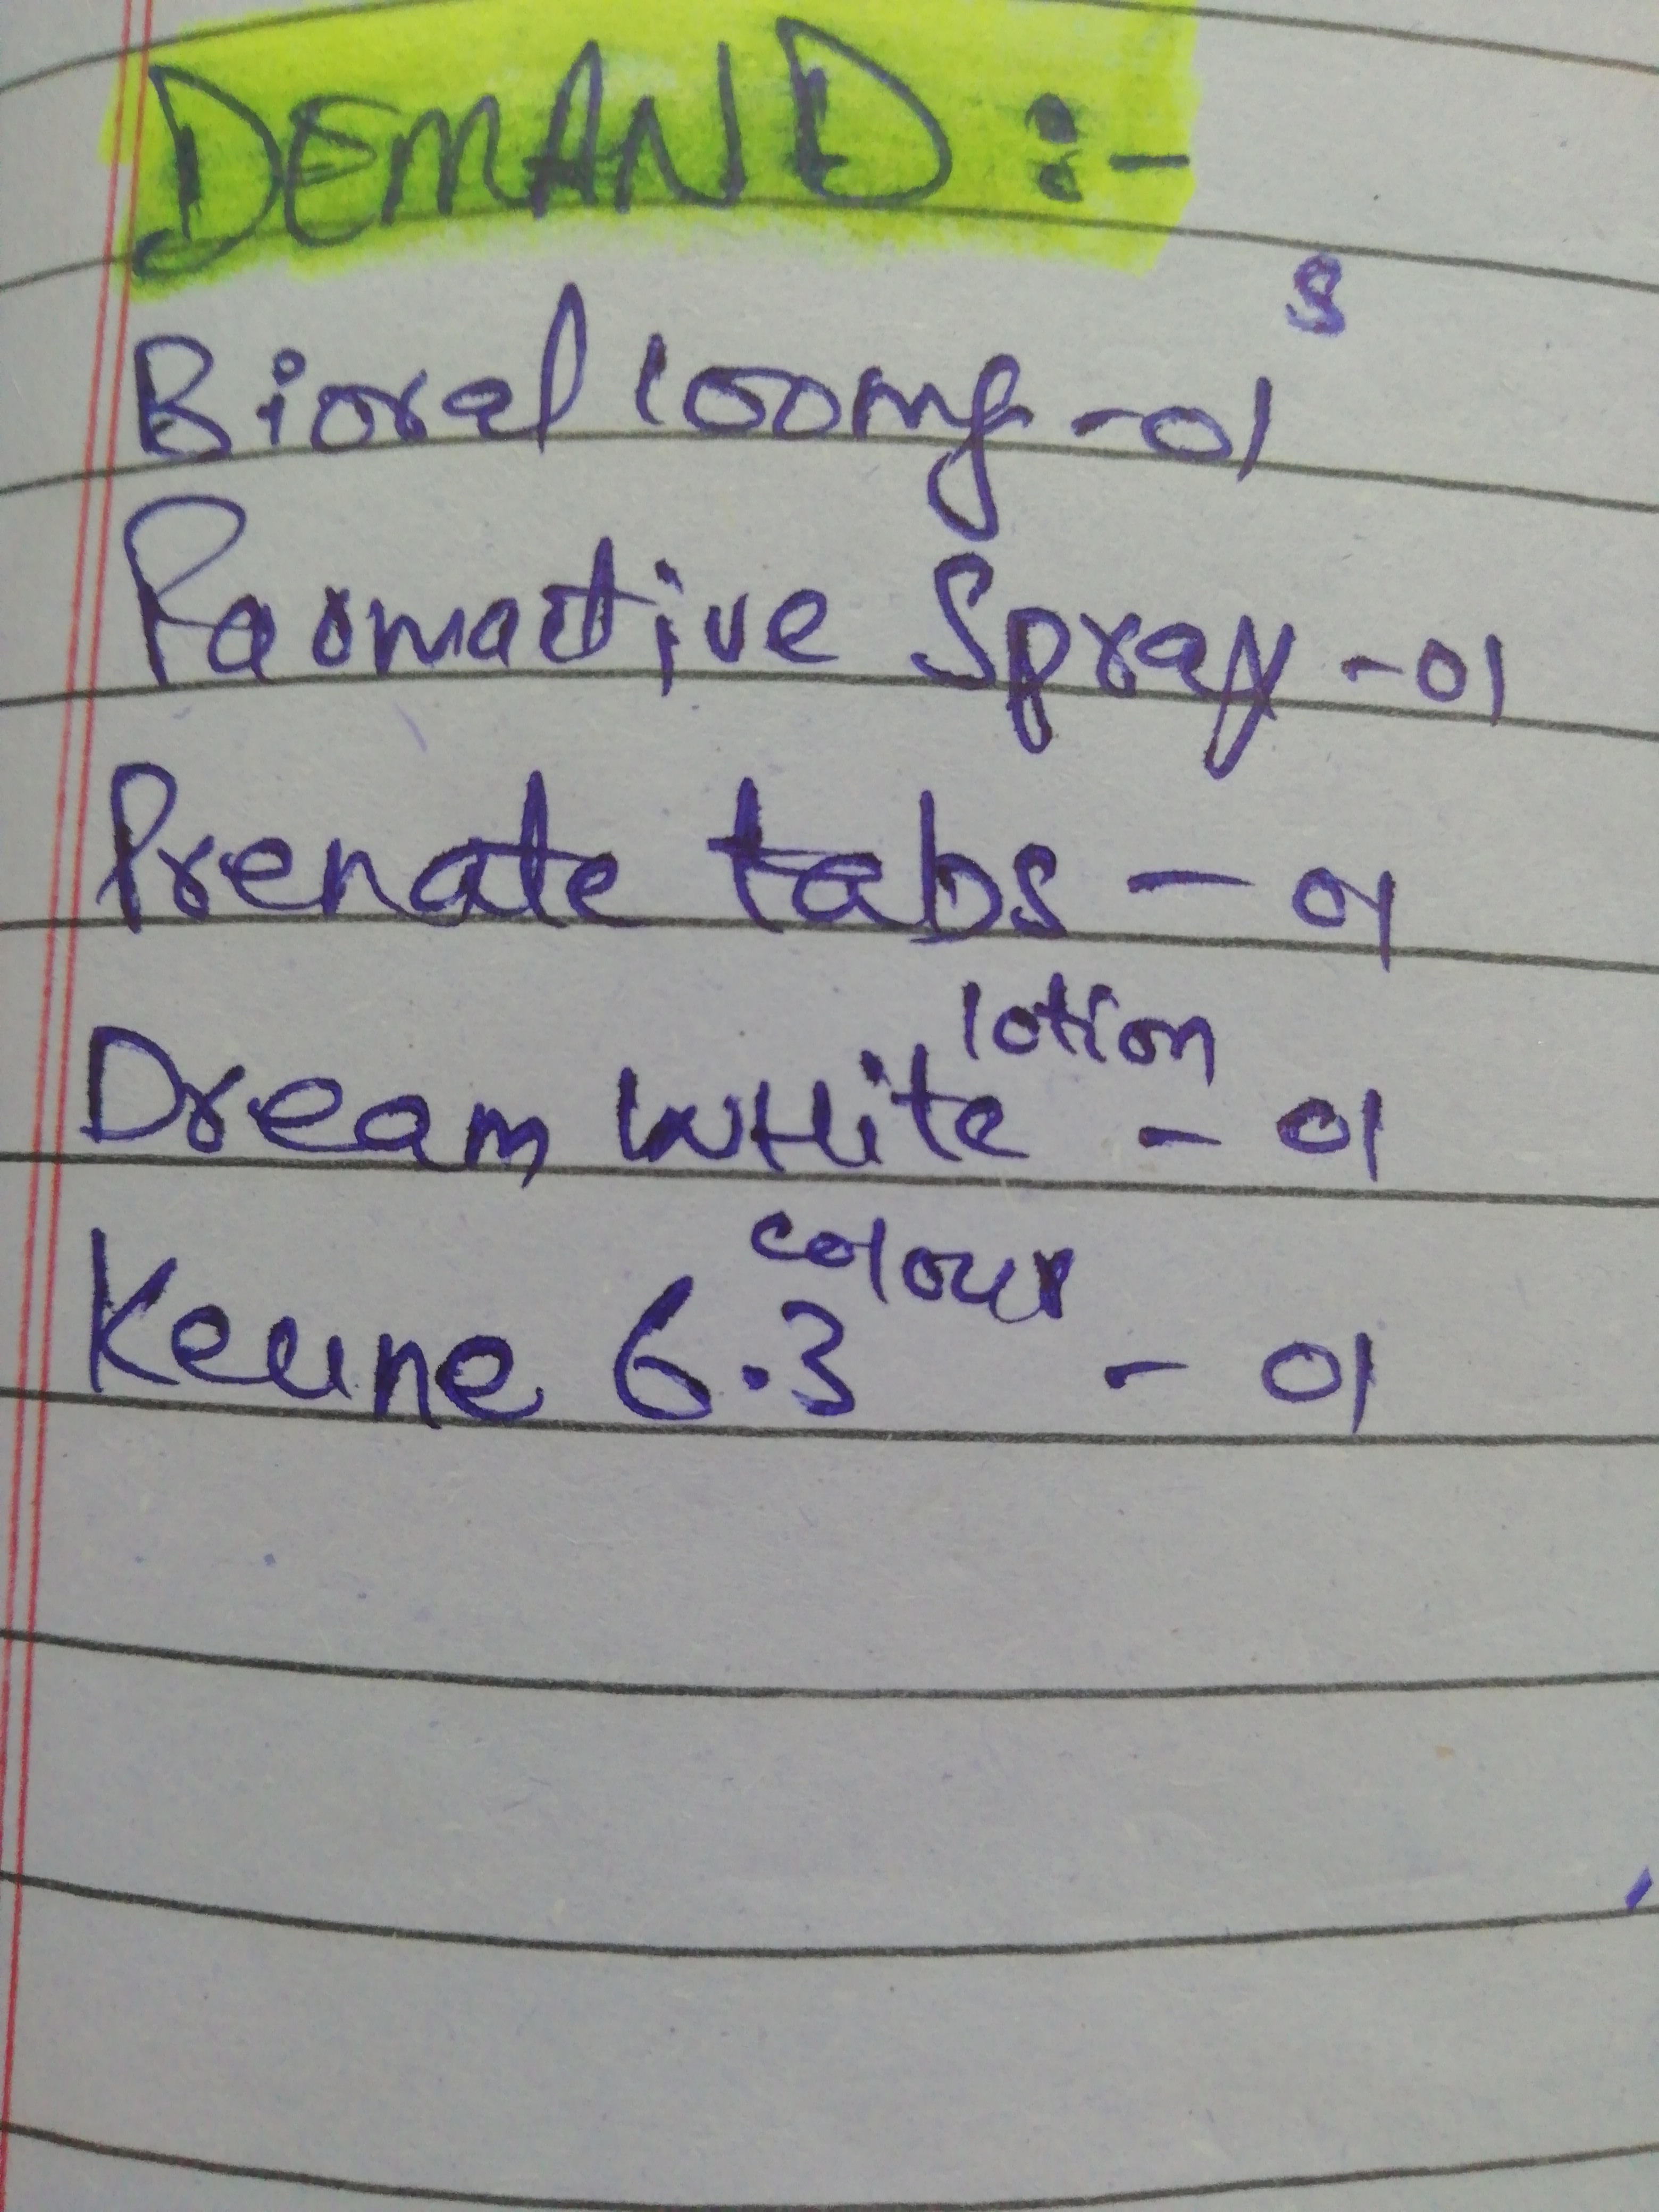 DEMAND :-
Bioral 100mg -01 S
Paomactive Spray -01
Prenate tabs - 01
Dream WHite lotion - 01
Keune 6.3 colour - 01